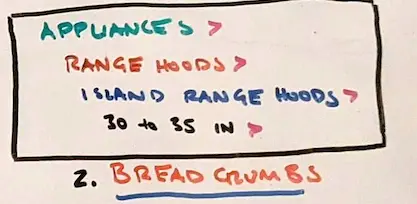 APPLIANCES >
RANGE HOODS >
ISLAND RANGE HOODS >
30 to 35 IN >
2. BREAD CRUMBS